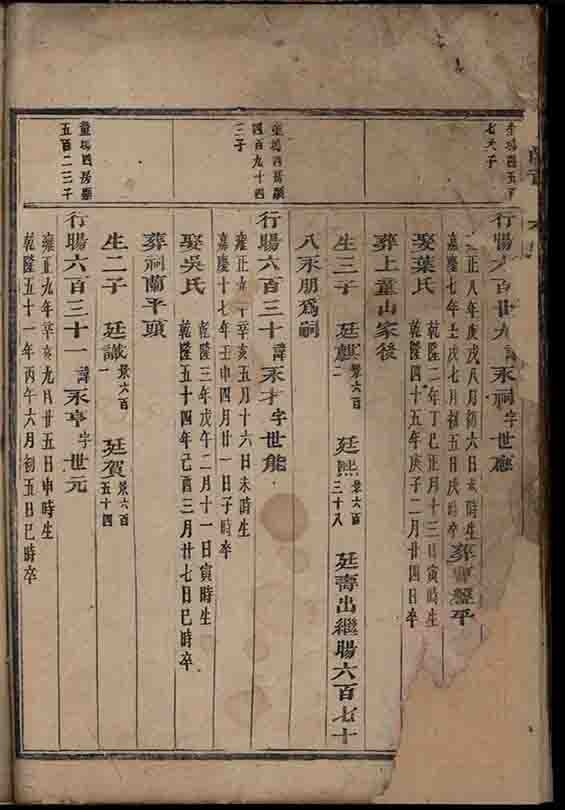 七大子
行賜六百廿九諱永祠字世應
正八年庚戌八月初六日未時生
嘉慶七年壬戌七月初五日戌時卒
葬平
娶葉氏
乾隆二年丁巳正月十三日寅時生
乾隆四十五年庚子二月廿四日卒
葬上童山家後
生三子 廷麒景六百二 廷熙景六百三十八 廷壽出繼賜六百七十
八永朋爲嗣
童塢四房顯
四百九十四
三子
行賜六百三十諱永才字世能
雍正九年辛亥五月十六日未時生
嘉慶十七年壬申四月廿一日子時卒
娶吳氏
乾隆三年戊午二月十一日寅時生
乾隆五十四年己酉三月廿七日巳時卒
葬祠蘭平頭
生二子 廷識景六百一 廷賀景六百五十四
童塢四房顯
五百二三子
行賜六百三十一諱永亨字世元
雍正九年辛亥九月廿五日申時生
乾隆五十一年丙午六月初五日巳時卒